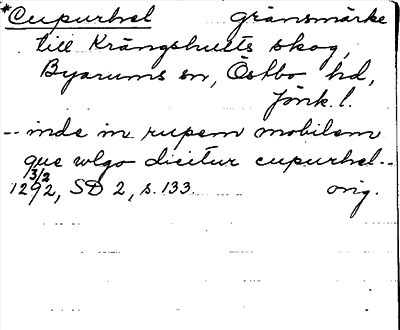 *Cupurhel gränsmärke
till Krängshults skog,
Byarums sn, Östbo hd,
Jönk. l.
-- inde in rupem mobilem
que wlgo dicitur cupurhel --
1292, 3/2 SD 2, s. 133. orig.